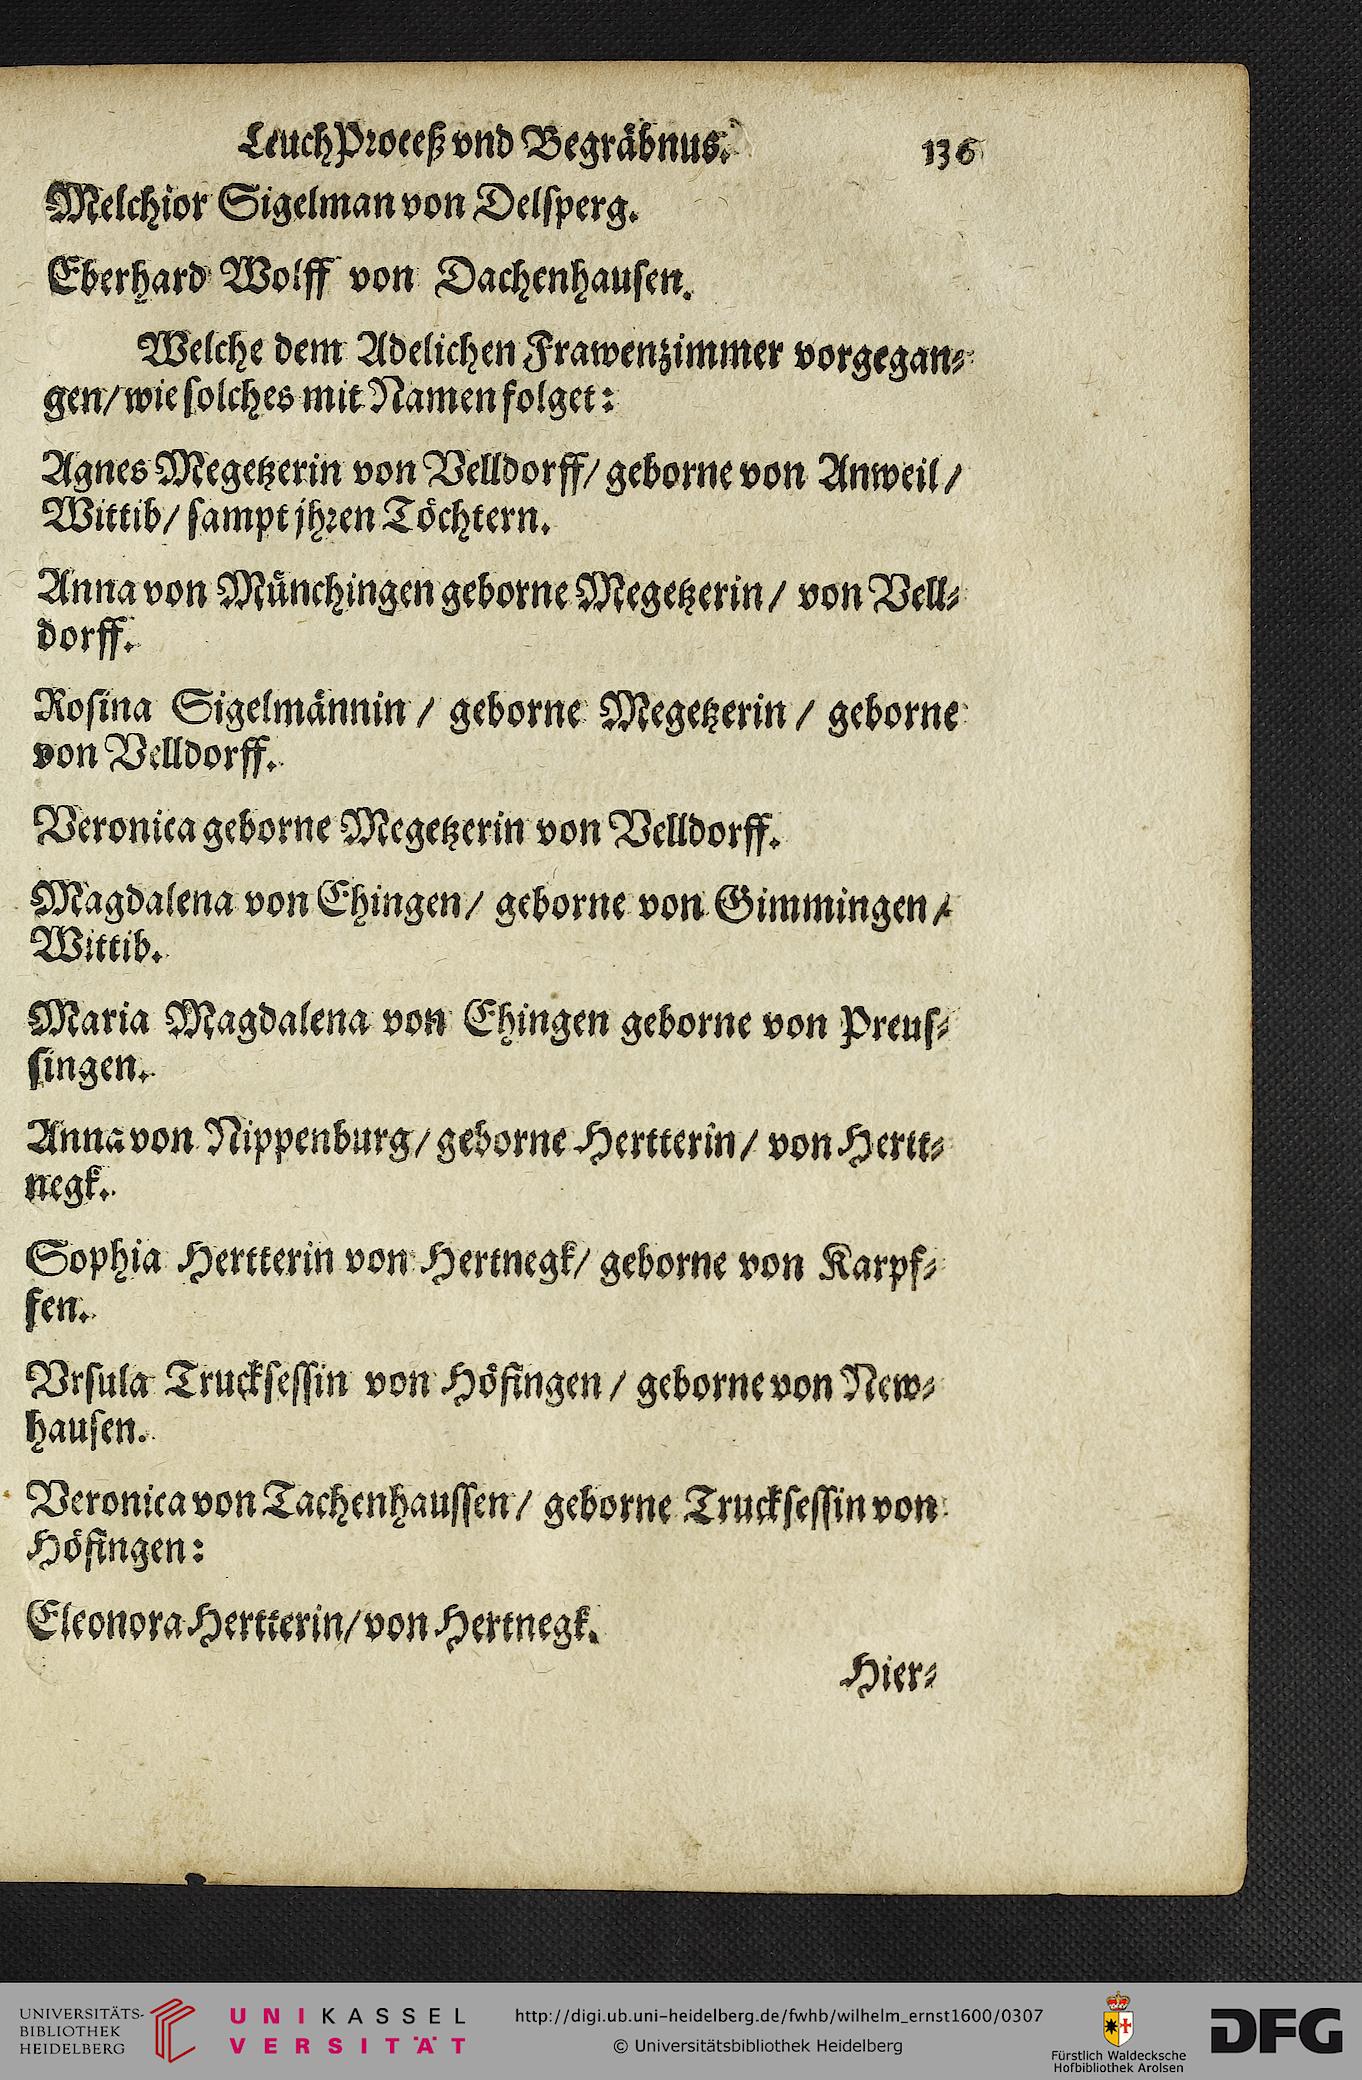 LeuchProceß vnd Begräbnus. 136
Melchior Sigelman von Delsperg.
Eberhard Wolff von Dachenhausen.
Welche dem Adelichen Frawenzimmer vorgegan-
gen/ wie solches mit Namen folget:
Agnes Megetzerin von Velldorff/ geborne von Anweil/
Wittib/ sampt jhren Töchtern.
Anna von Münchingen geborne Megetzerin/ von Vell-
dorff.
Rosina Sigelmännin/ geborne Megetzerin/ geborne
von Velldorff.
Veronica geborne Megetzerin von Velldorff.
Magdalena von Ehingen/ geborne von Gimmingen/
Wittib.
Maria Magdalena von Ehingen geborne von Preus-
singen.
Anna von Nippenburg/ geborne Hertterin/ von Hertt-
negk.
Sophia Hertterin von Hertnegk/ geborne von Karpf-
fen.
Vrsula Trucksessin von Höfingen/ geborne von New-
hausen.
Veronica von Tachenhaussen/ geborne Trucksessin von
Höfingen:
Eleonora Hertterin/ von Hertnegk.
Hier-
UNIVERSITÄTS-
BIBLIOTHEK
HEIDELBERG
UNIKASSEL
VERSITÄT
http://digi.ub.uni-heidelberg.de/fwhb/wilhelm_ernst1600/0307
© Universitätsbibliothek Heidelberg
Fürstlich Waldecksche
Hofbibliothek Arolsen
DFG